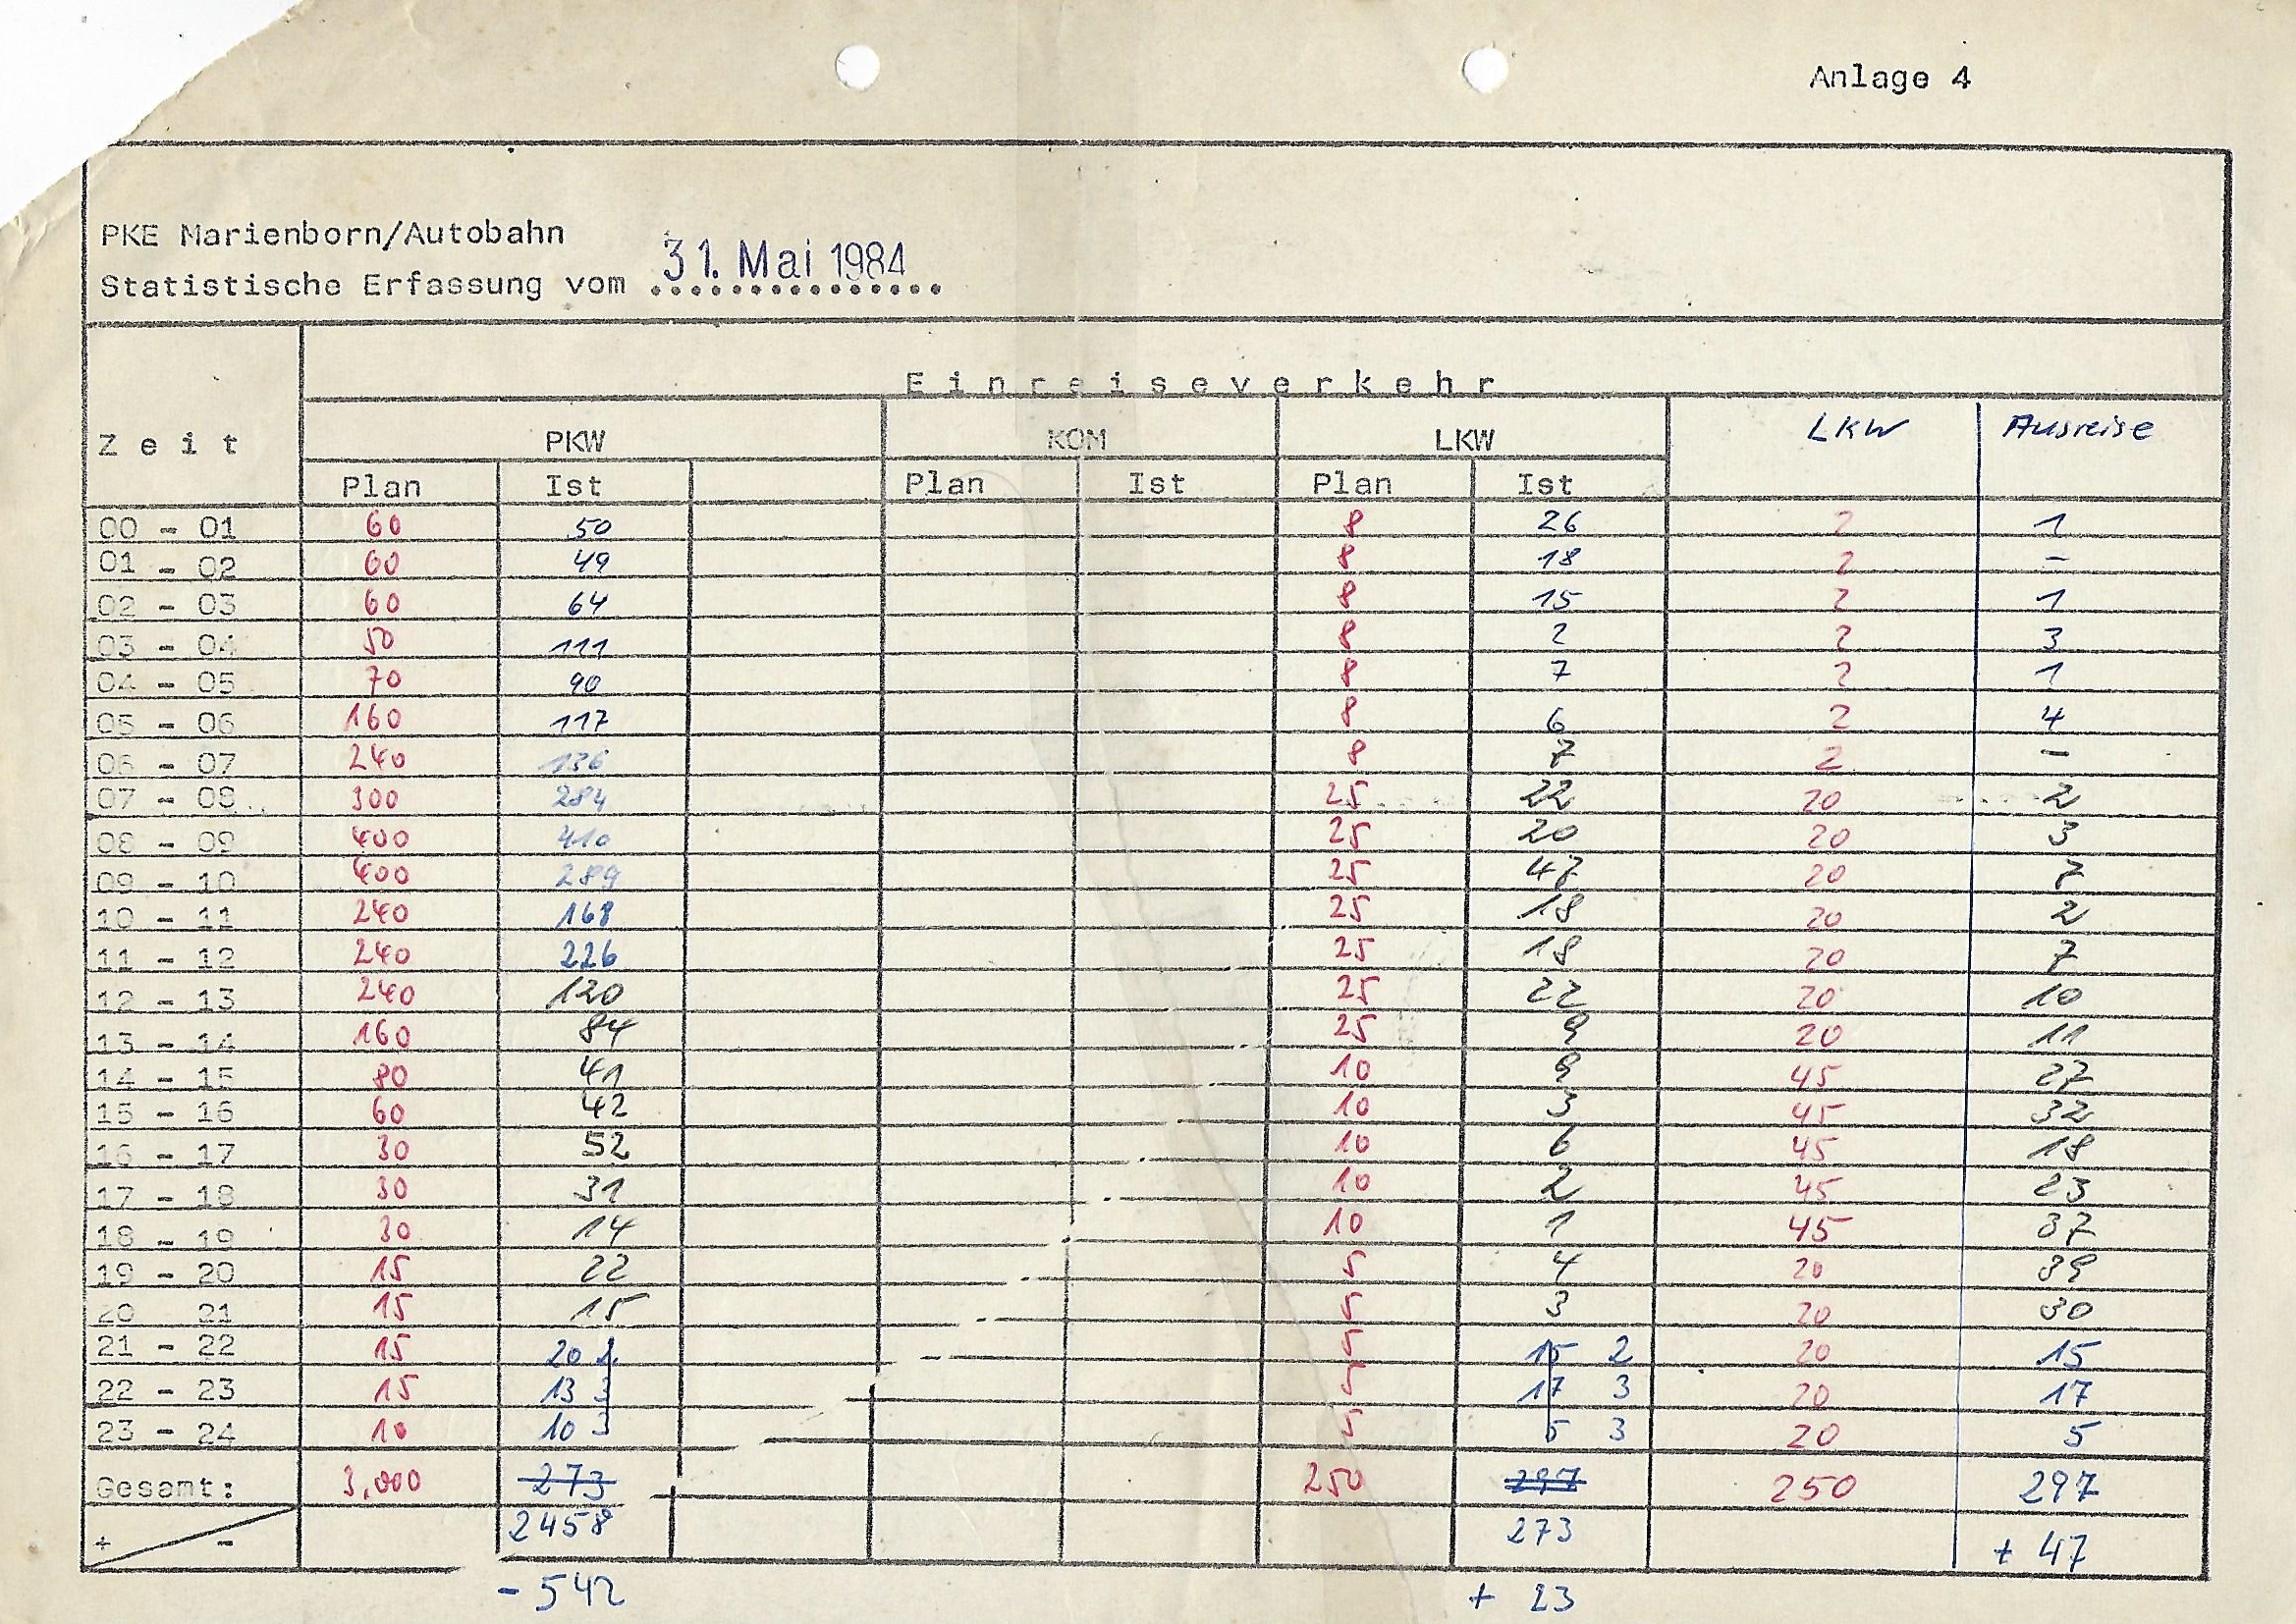 Anlage 4
PKE Marienborn/Autobahn
Statistische Erfassung vom 31. Mai 1984
Einreiseverkehr
Zeit PKW KOM LKW LKW Ausreise
Plan Ist Plan Ist Plan Ist
00 - 01 60 50 8 26 2 1
01 - 02 60 49 8 18 2 -
02 - 03 60 64 8 15 2 1
03 - 04 50 111 8 2 2 3
04 - 05 70 90 8 7 2 1
05 - 06 160 117 8 6 2 4
06 - 07 240 136 8 7 2 -
07 - 08 300 284 25 22 20 2
08 - 09 400 410 25 20 20 3
09 - 10 400 289 25 47 20 7
10 - 11 240 168 25 18 20 2
11 - 12 240 226 25 18 20 7
12 - 13 240 120 25 22 20 10
13 - 14 160 84 25 9 20 11
14 - 15 80 41 10 9 45 27
15 - 16 60 42 10 3 45 32
16 - 17 30 52 10 6 45 18
17 - 18 30 31 10 2 45 23
18 - 19 30 14 10 1 45 37
19 - 20 15 22 5 4 20 39
20 21 15 15 5 3 20 30
21 - 22 15 20 2 5 15 2 20 15
22 - 23 15 13 3 5 17 3 20 17
23 - 24 10 10 3 5 5 3 20 5
Gesamt: 3.000 273 250 297 250 297
+ - 2458 273 + 47
- 542 + 23